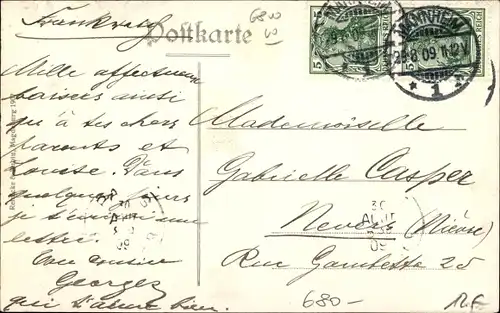 Frankreich
Postkarte
6800
MANNHEIM
MANNHEIM
28.8.09.11-12V.
* 1 *
5
5
REICH
Mille affectueux
baisers ainsi
qu'à tes chers
parents et
Louise. Dans
quelques jours
je t'écrirai une
lettre.
Ton cousin
Georges
qui t'aime bien.
Mademoiselle
Gabrielle Casper
Nevers (Nièvre)
Rue Gambetta 25
30
09
680-